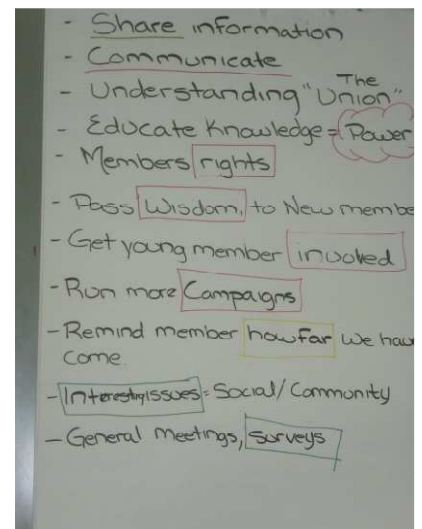 - Share information
- Communicate
- Understanding "The Union"
- Educate Knowledge = Power
- Members rights
- Pass Wisdom, to New membe
- Get young member invoved
- Run more Campaigns
- Remind member how far we hav
come.
- Interesting issues = Social/Community
- General meetings, surveys